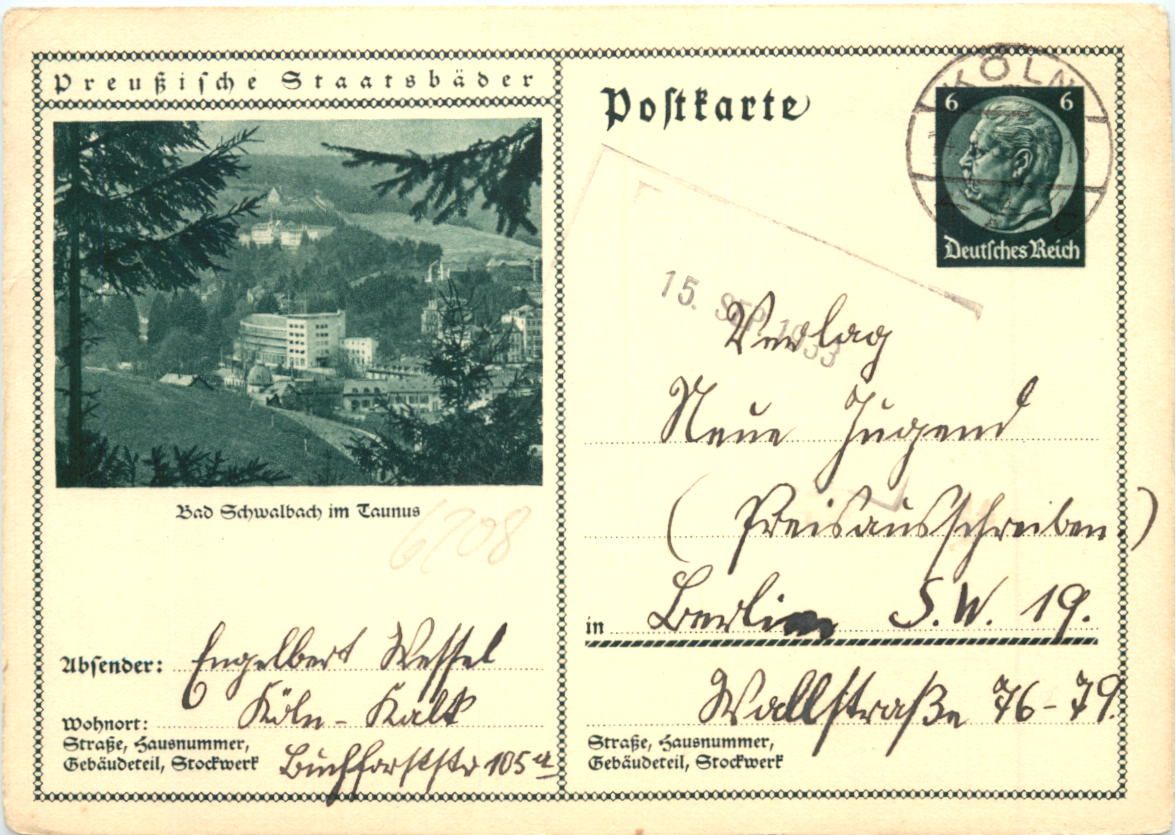 Preußische Staatsbäder
Bad Schwalbach im Taunus
6208
Absender: Engelbert Wessel
Wohnort: Köln - Kalk
Straße, Hausnummer,
Gebäudeteil, Stockwerk Buchforststr 105a
Postkarte
KÖLN
6 6
Deutsches Reich
15. SEP. 1933
Verlag
Neue Jugend
(Preisausschreiben)
in Berlin S.W. 19.
Wallstraße 76-79.
Straße, Hausnummer,
Gebäudeteil, Stockwerk